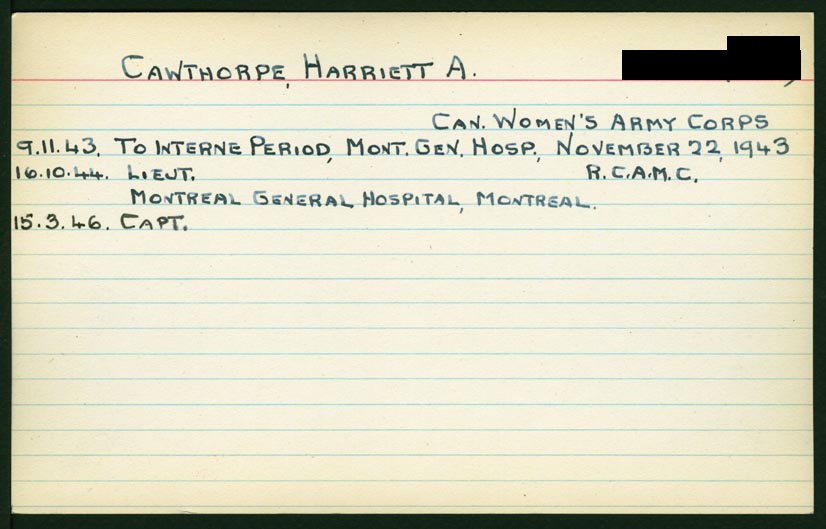 CAWTHORPE, HARRIETT A.
CAN. WOMEN'S ARMY CORPS
9.11.43. TO INTERNE PERIOD, MONT. GEN. HOSP., NOVEMBER 22, 1943
16.10.44. LIEUT. R.C.A.M.C.
MONTREAL GENERAL HOSPITAL, MONTREAL.
15.3.46. CAPT.